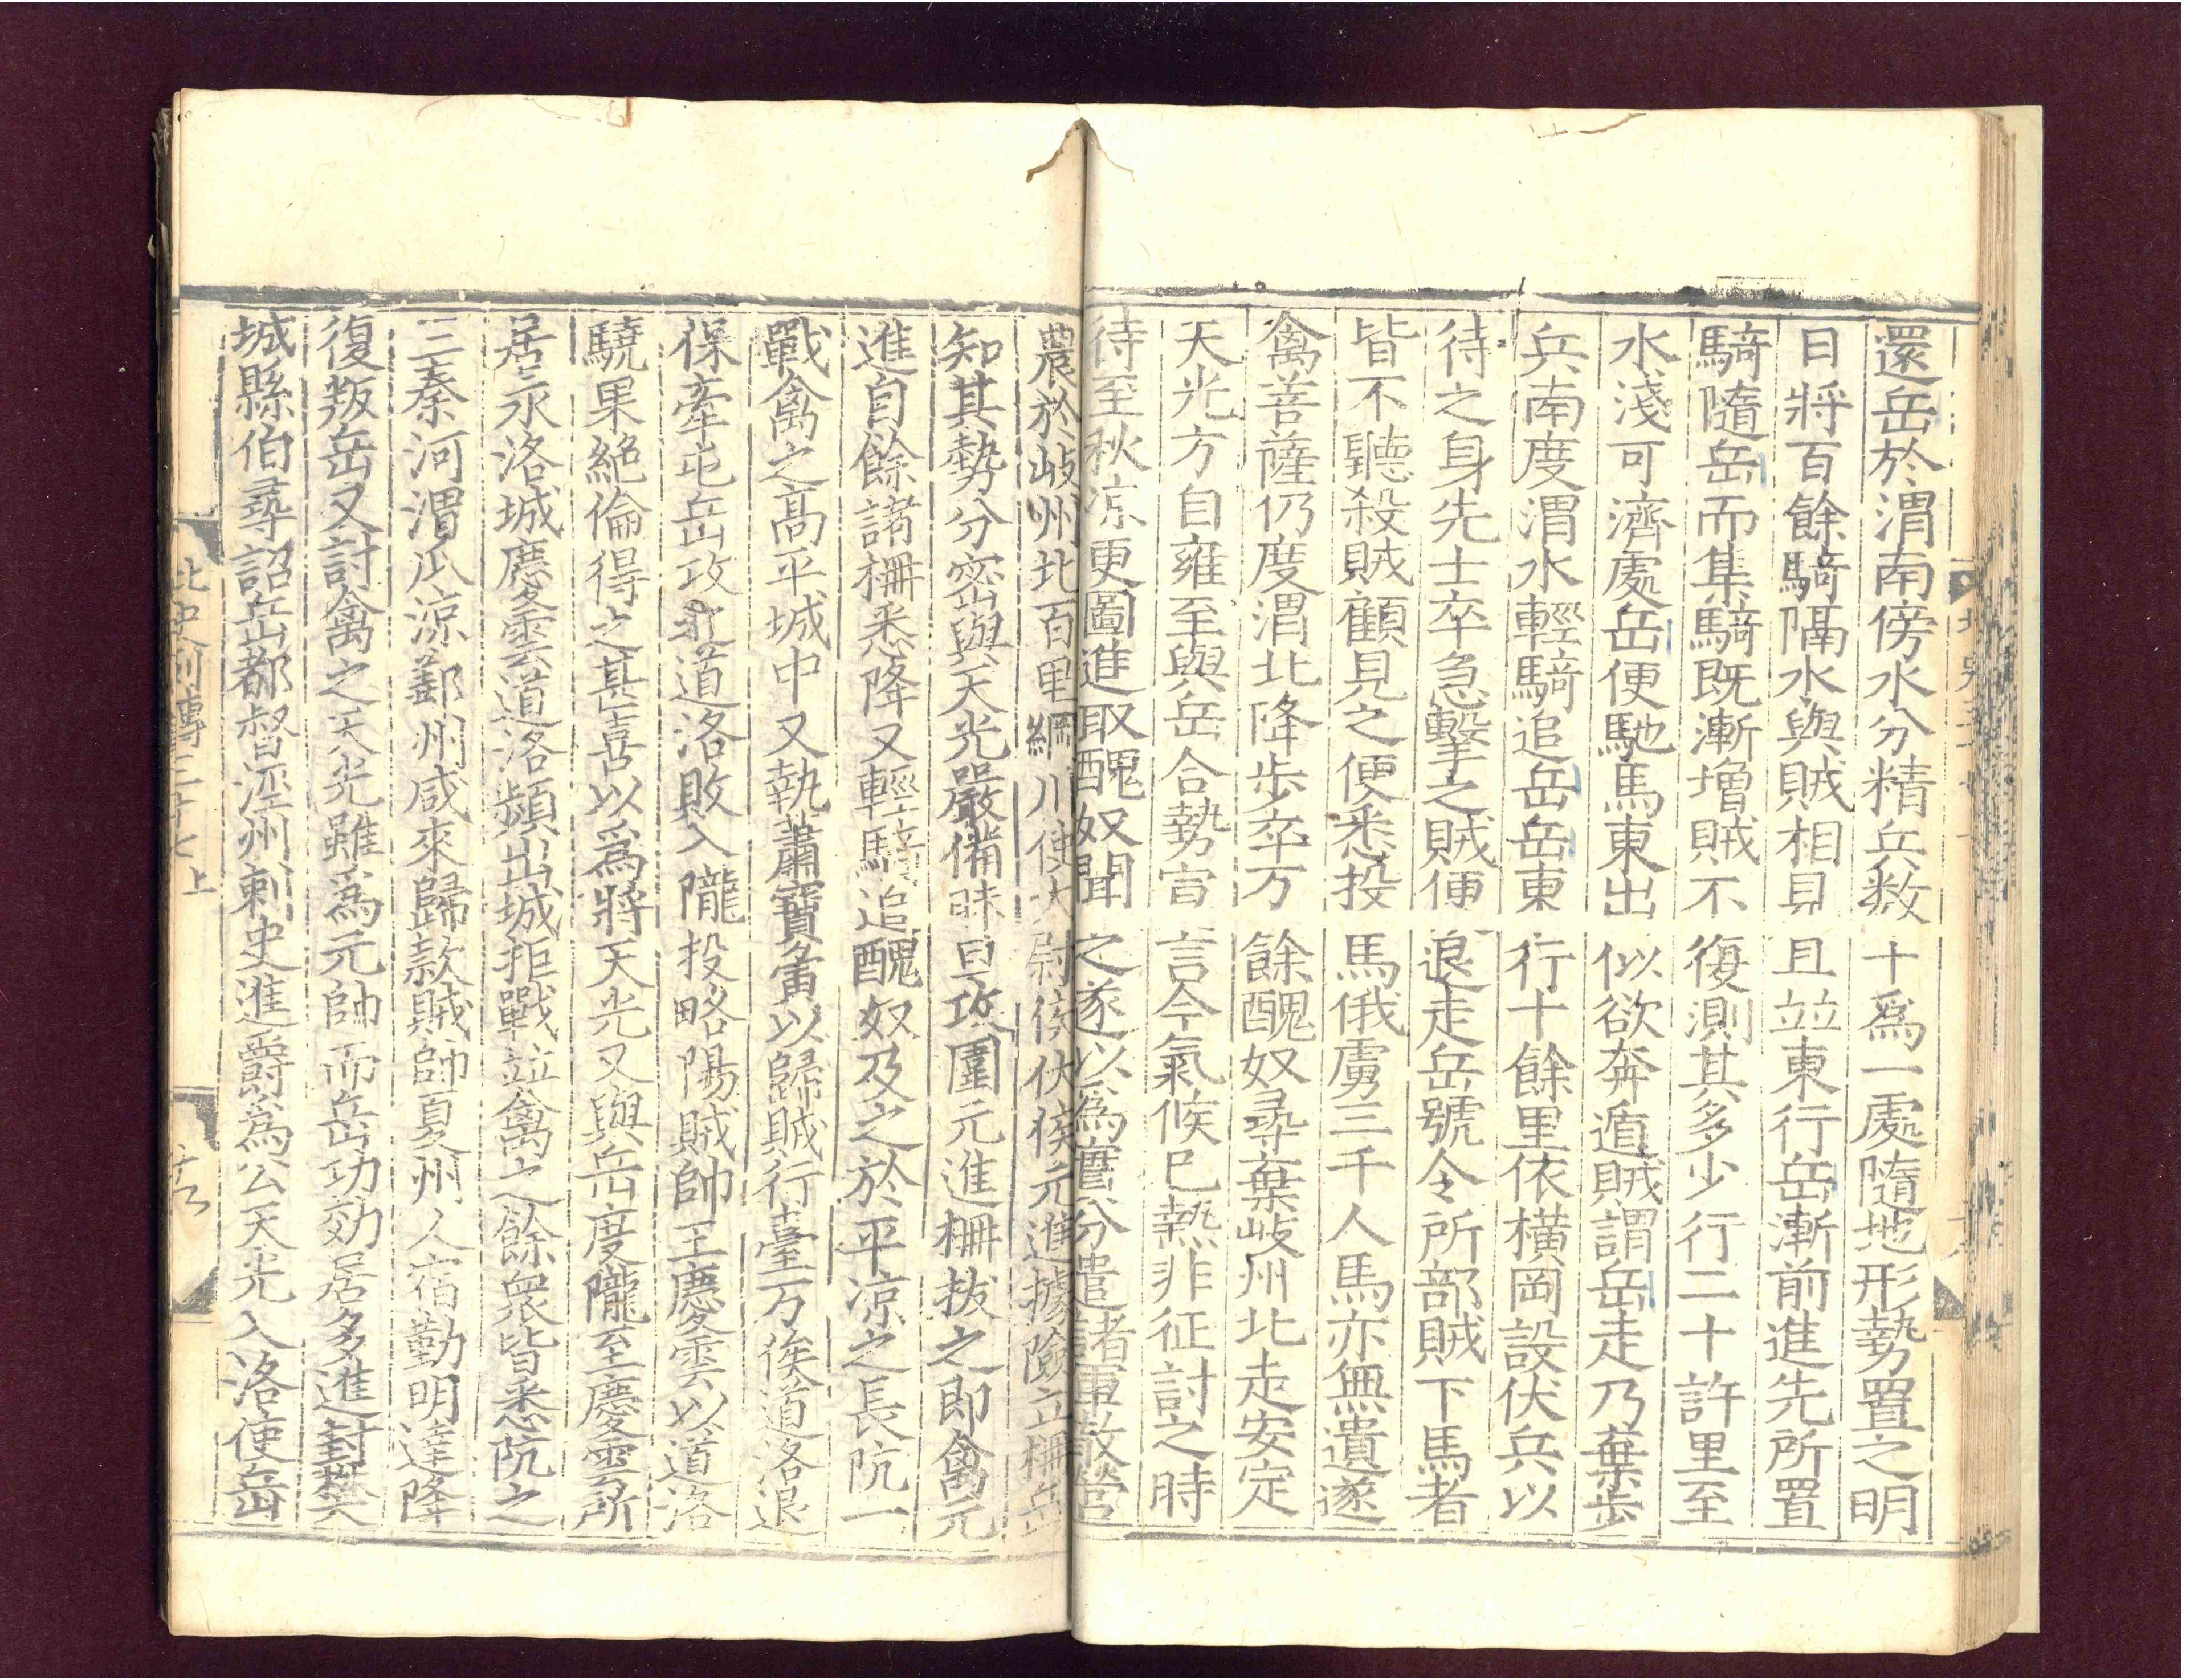 還岳於渭南傍水分精兵数十爲一處隨地形勢置之明
日將百餘騎隔水與賊相見且並東行岳漸前進先所置
騎隨岳而集騎既漸增賊不復測其多少行二十許里至
水淺可濟處岳便馳馬東出似欲奔遁賊謂岳走乃棄步
兵南度渭水輕騎追岳岳東行十餘里依橫岡設伏兵以
待之身先士卒急擊之賊便退走岳號令所部賊下馬者
皆不聽殺賊顧見之便悉投馬俄虜三千人馬亦無遺遂
禽菩薩仍度渭北降步卒万餘醜奴尋棄岐州北走安定
天光方自雍至與岳合勢宣言今氣候已熱非征討之時
待至秋凉更圖進取醜奴聞之遂以爲實分遣諸軍散營
農於岐州北百里細川使太尉侯伏侯元進據險立柵岳
知其勢分密與天光嚴備昧旦攻圍元進柵拔之即禽元
進自餘諸柵悉降又輕騎追醜奴及之於平凉之長阬一
戰禽之高平城中又執蕭寶夤以歸賊行臺万俟道洛退
保牽屯岳攻之道洛敗入隴投略陽賊帥王慶雲以道洛
驍果絕倫得之甚喜以爲將天光又與岳度隴至慶雲所
居永洛城慶雲道洛頻出城拒戰並禽之餘衆皆悉阬之
三秦河渭瓜凉鄯州咸來歸款賊帥夏州人宿勤明達降
復叛岳又討禽之天光雖爲元帥而岳功効居多進封樊
城縣伯尋詔岳都督涇州刺史進爵爲公天光入洛使岳
北史列傳三十七上